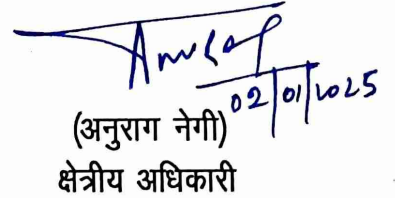 Anurag
02/01/2025
(अनुराग नेगी)
क्षेत्रीय अधिकारी